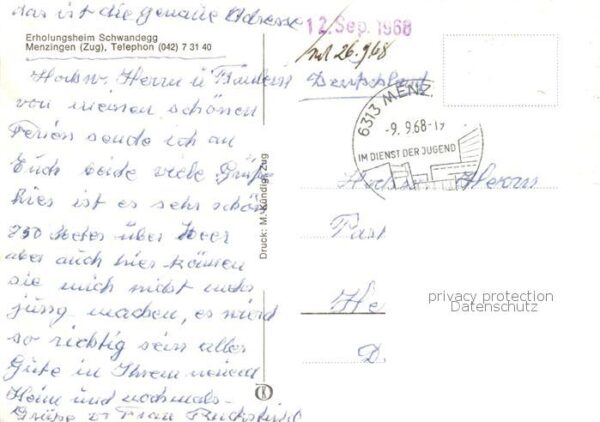 das ist die genaue Adresse
Erholungsheim Schwandegg
Menzingen (Zug), Telephon (042) 7 31 40
12. Sep. 1968
26.9.68
Hochw. Herrn u
Deutschland
von meinen schönen
Ferien sende ich an
Euch beide viele Grüße
hier ist es sehr schön
850 Meter über Meer
aber auch hier können
sie mich nicht mehr
jung machen, es wird
so richtig sein alles
Gute in Ihrem neuen
Heim und nochmals
Grüße v Frau
Druck: M. Kündig, Zug
6313 MENZ
-9. 9.68-19
IM DIENST DER JUGEND
Herrn
He
D.
privacy protection
Datenschutz